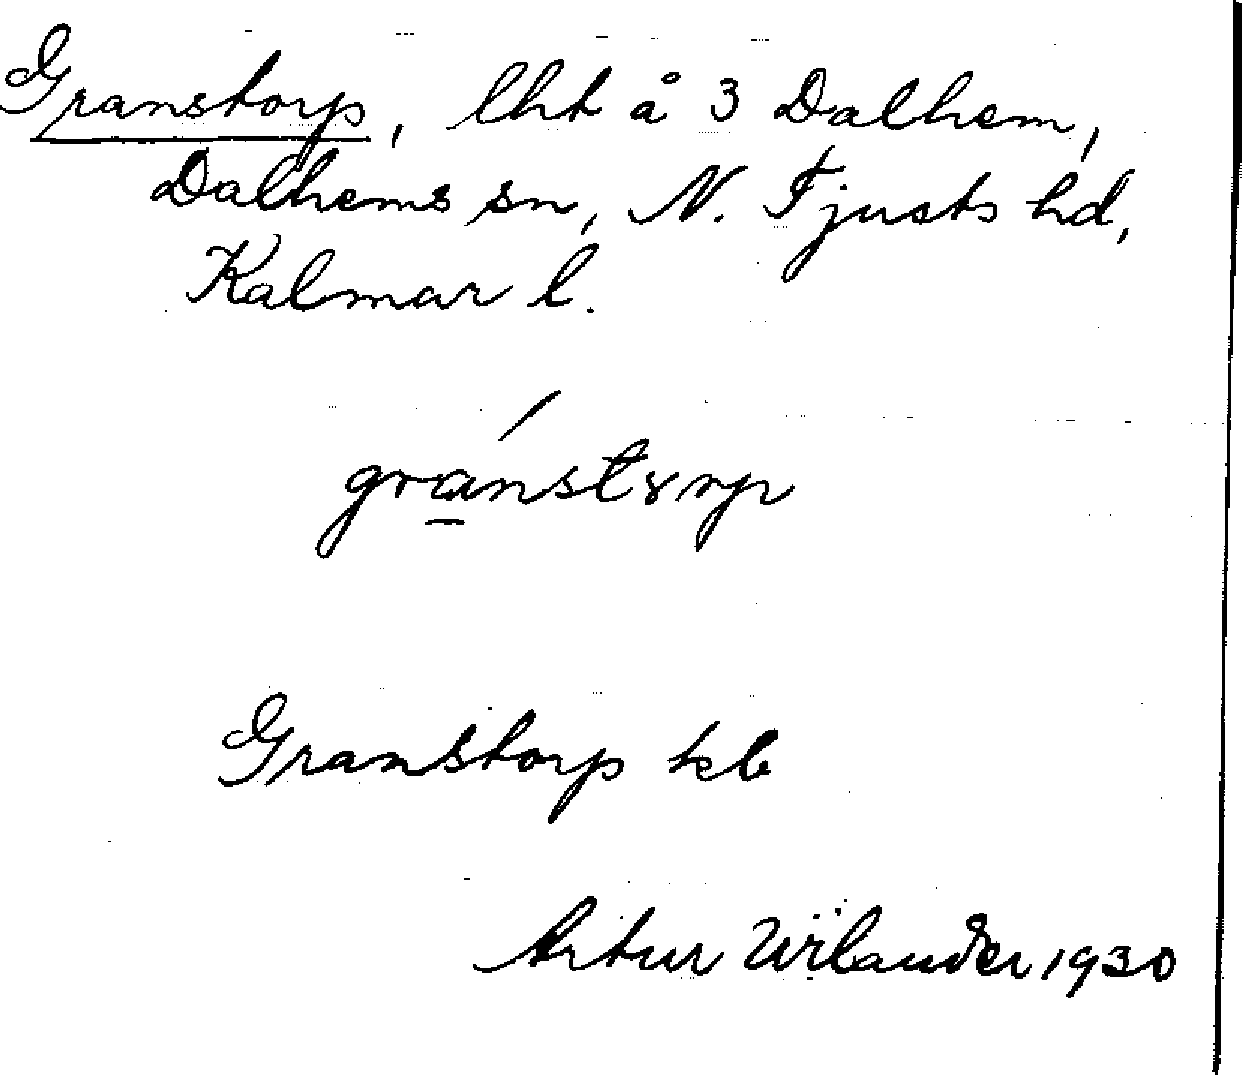 Granstorp, lht å 3 Dalhem,
Dalhems sn, N. Tjusts hd,
Kalmar l.
gránstɤrp
Granstorp kb
Artur Wilander 1930